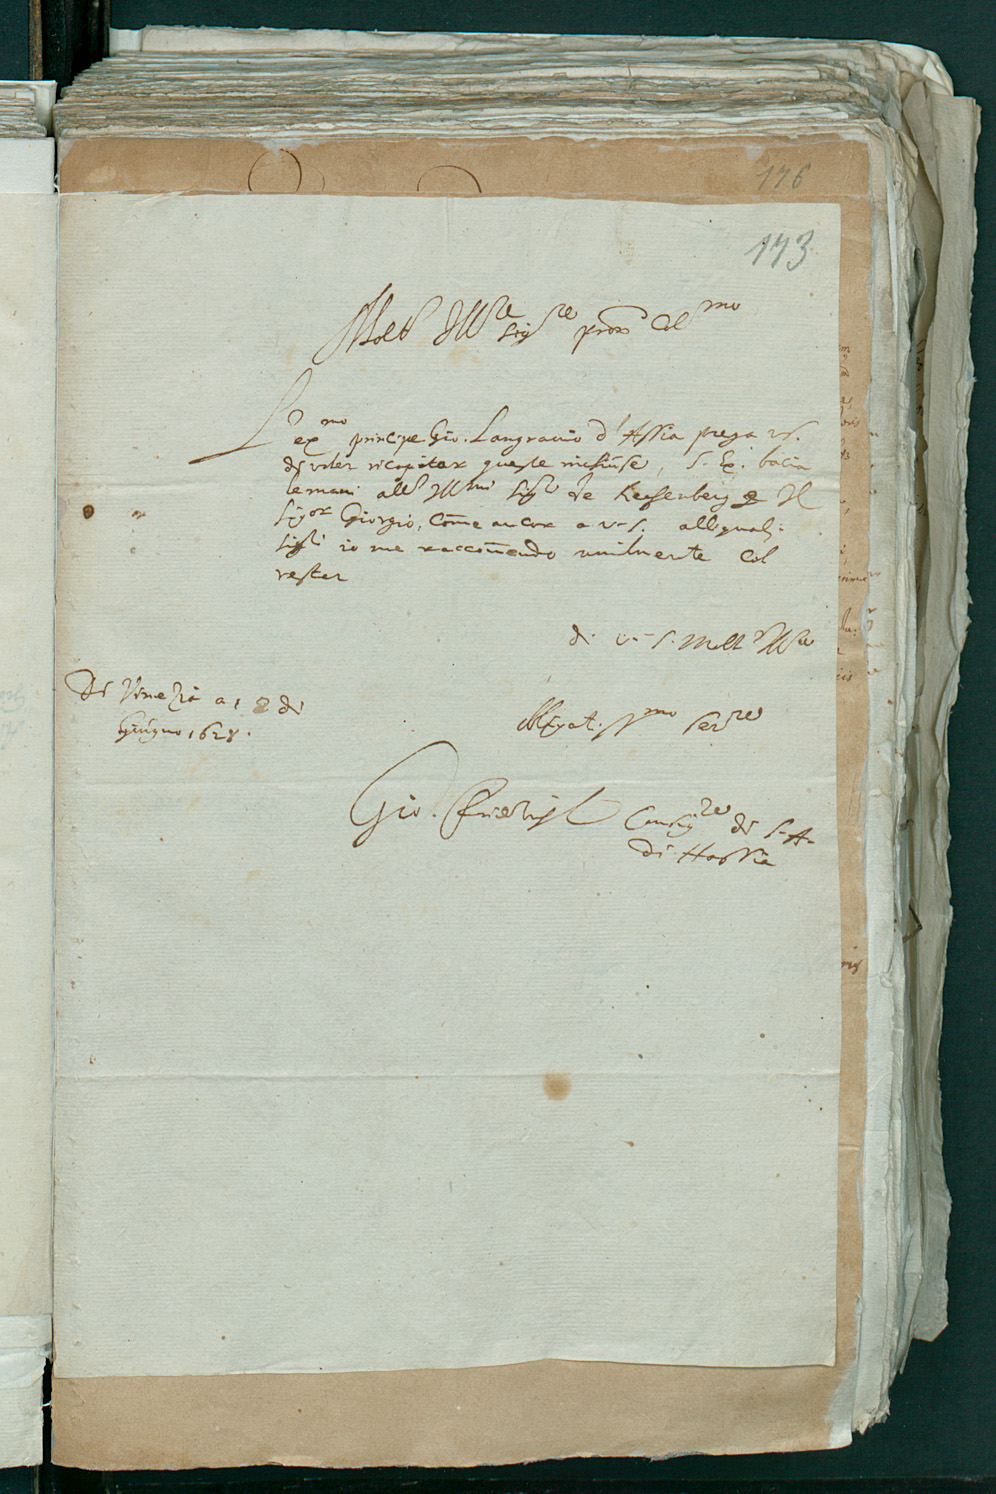 176
173
Molto Ill.re Sig.re pron Col.mo
L'ex.mo principe Gio. Langravio d'Assia prega v.s.
di voler ricapitar queste inchiuse, S. Ex. bacia
le mani all' Ill.mi Sig.ri de Keffenberg et Il
Sig.or Giorgio, come ancor a v.s. alli quali
Sig.ri io me raccom̄endo umilmente col
restar
di v.s. Molt Ill.re
Di Venezia a 12 di
Giugno 1628.
Obligatiss.mo Ser.re
Gio. Friedrich Consig.re di S.A.
di Hassia